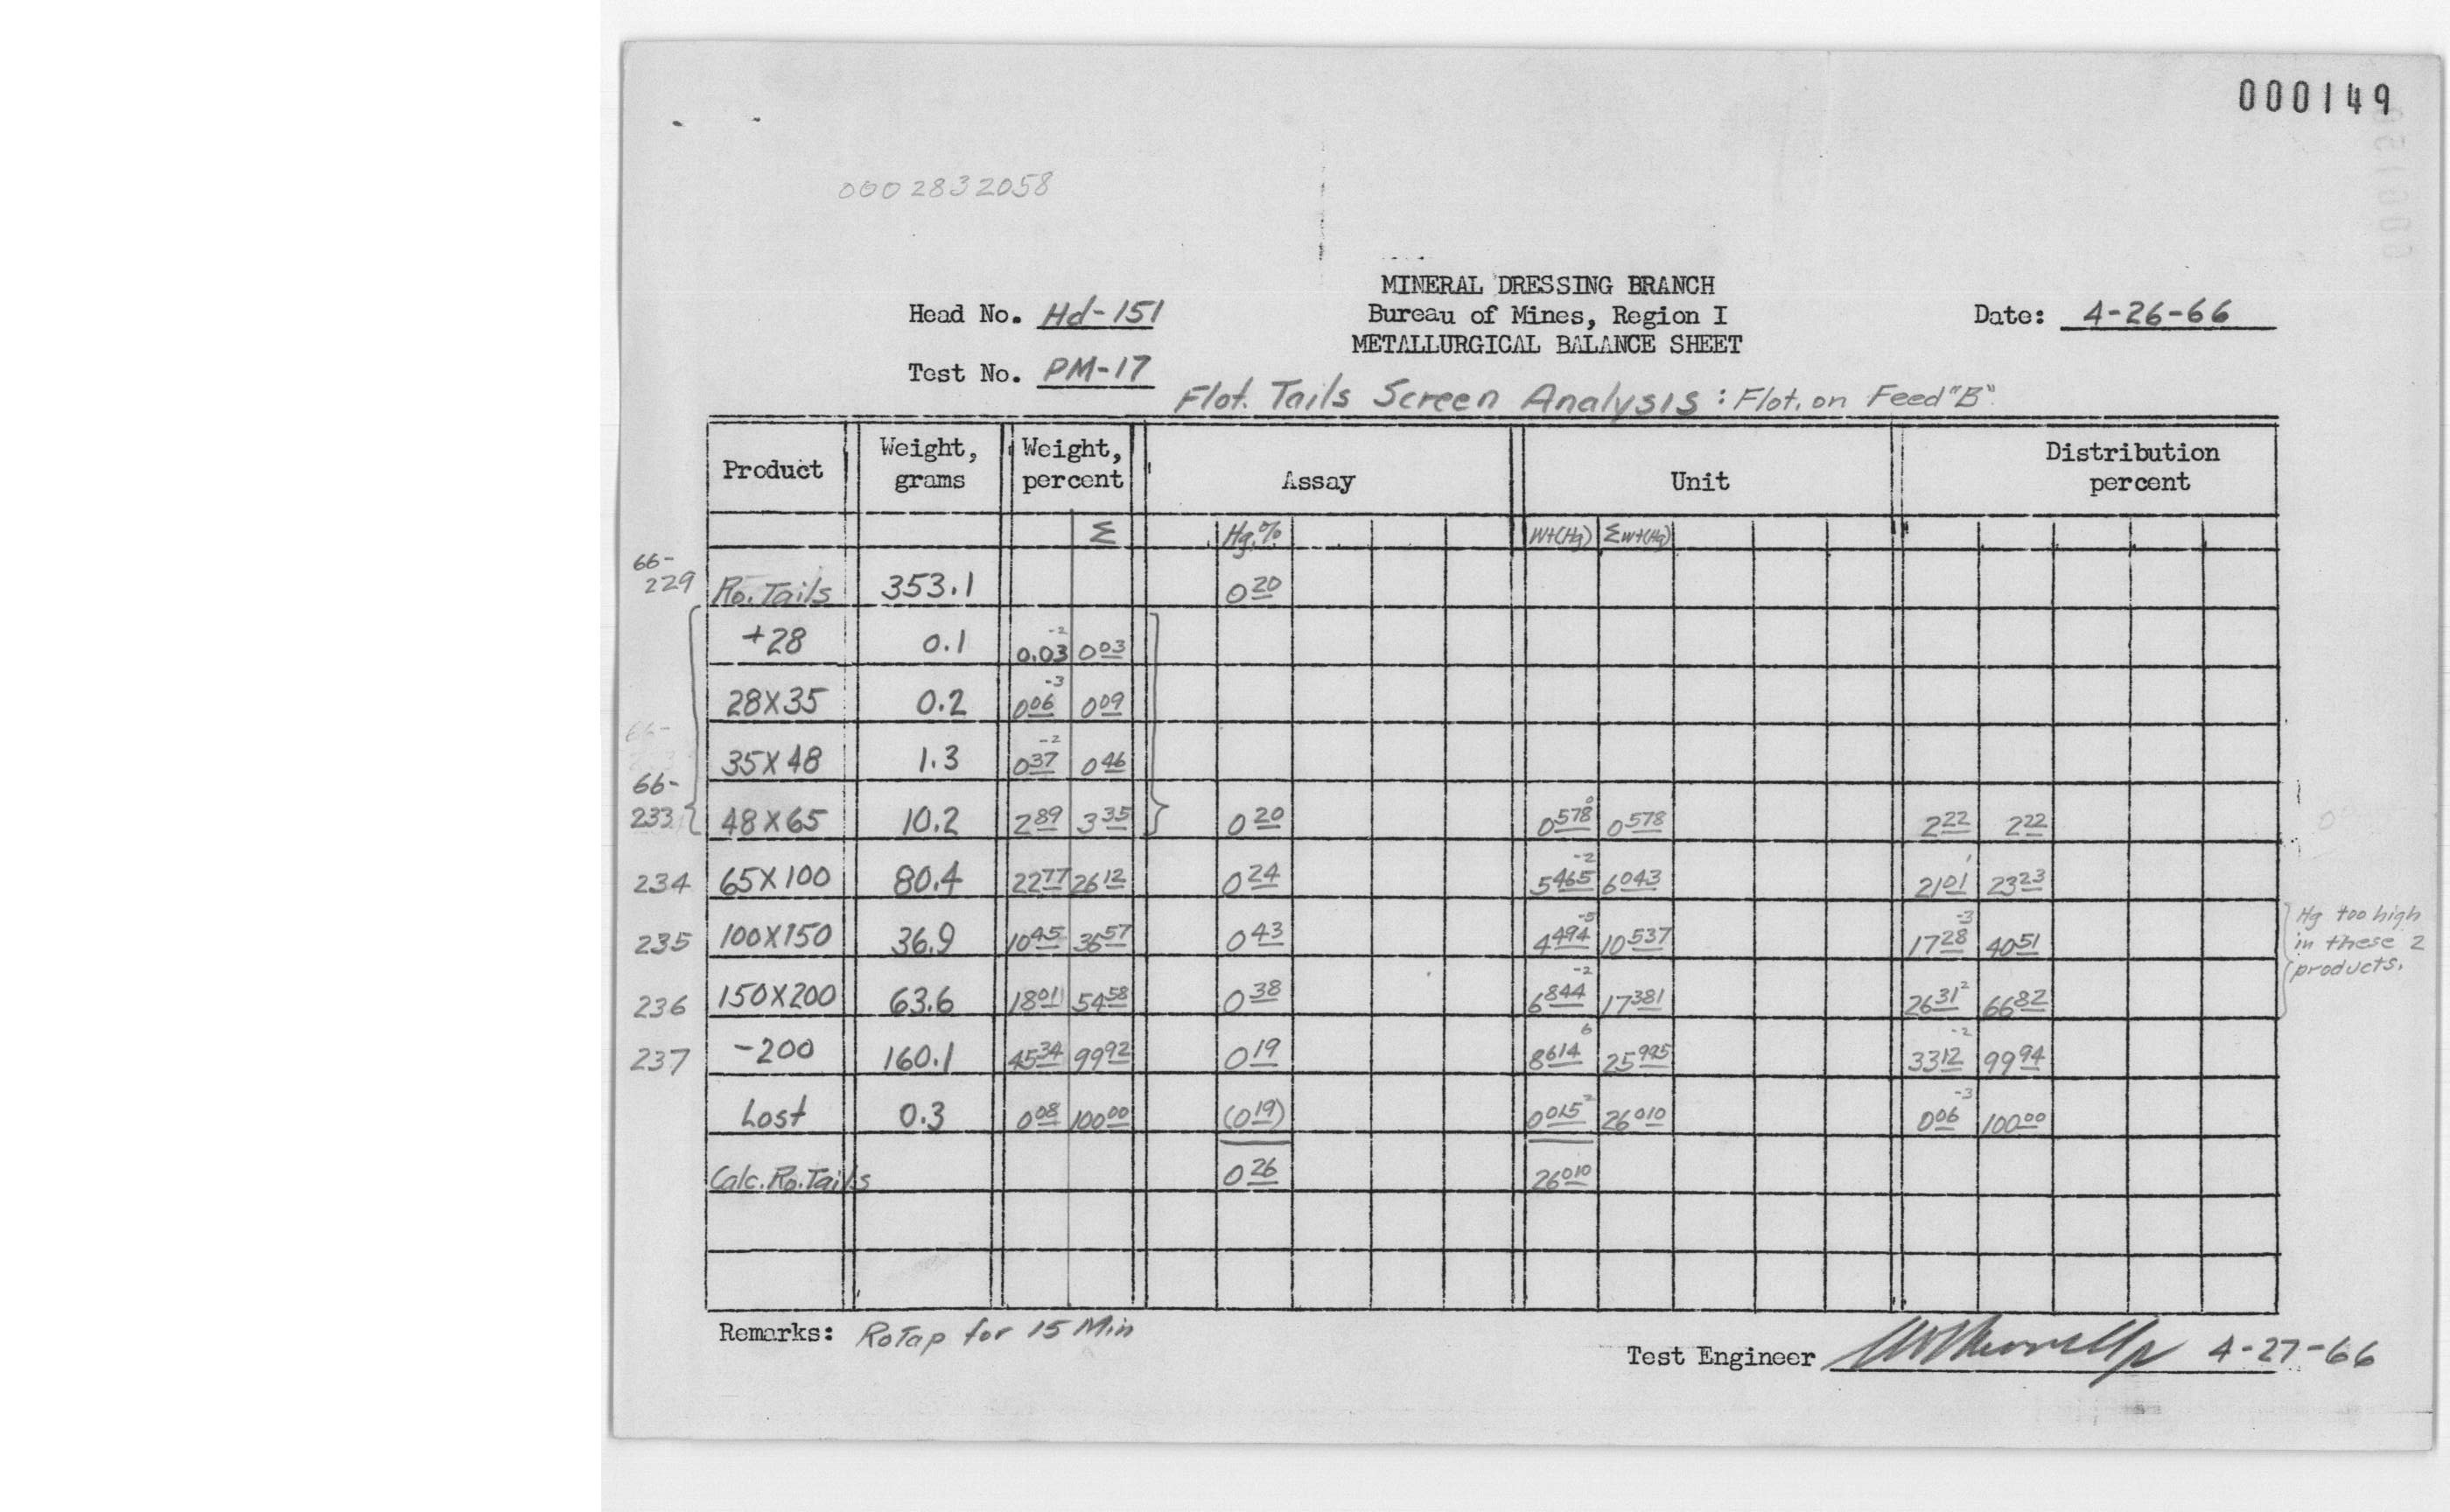 000149
0002832058
MINERAL DRESSING BRANCH
Head No. Hd-151 Bureau of Mines, Region I Date: 4-26-66
METALLURGICAL BALANCE SHEET
Test No. PM-17
Flot. Tails Screen Analysis: Flot. on Feed "B"
Product Weight, grams Weight, percent Assay Unit Distribution percent
Σ Hg.% Wt(Hg) Σwt(Hg)
66-229 Ro. Tails 353.1 0 20
+28 0.1 0.03 -2 0 03
28X35 0.2 0 06 -3 0 09
35X48 1.3 0 37 -2 0 46
66-233 48X65 10.2 2 89 3 35 0 20 0 578 0 0 578 2 22 2 22
234 65X100 80.4 22 77 26 12 0 24 5 465 -2 6 043 21 01 1 23 23
235 100X150 36.9 10 45 36 57 0 43 4 494 -5 10 537 17 28 -3 40 51
236 150X200 63.6 18 01 54 58 0 38 6 844 -2 17 381 26 31 2 66 82
237 -200 160.1 45 34 99 92 0 19 8 614 6 25 995 33 12 -2 99 94
Lost 0.3 0 08 100 00 (0 19) 0 015 2 26 010 0 06 -3 100 00
Calc. Ro. Tails 0 26 26 010
Hg too high
in these 2
products.
Remarks: RoTap for 15 Min
Test Engineer 4-27-66